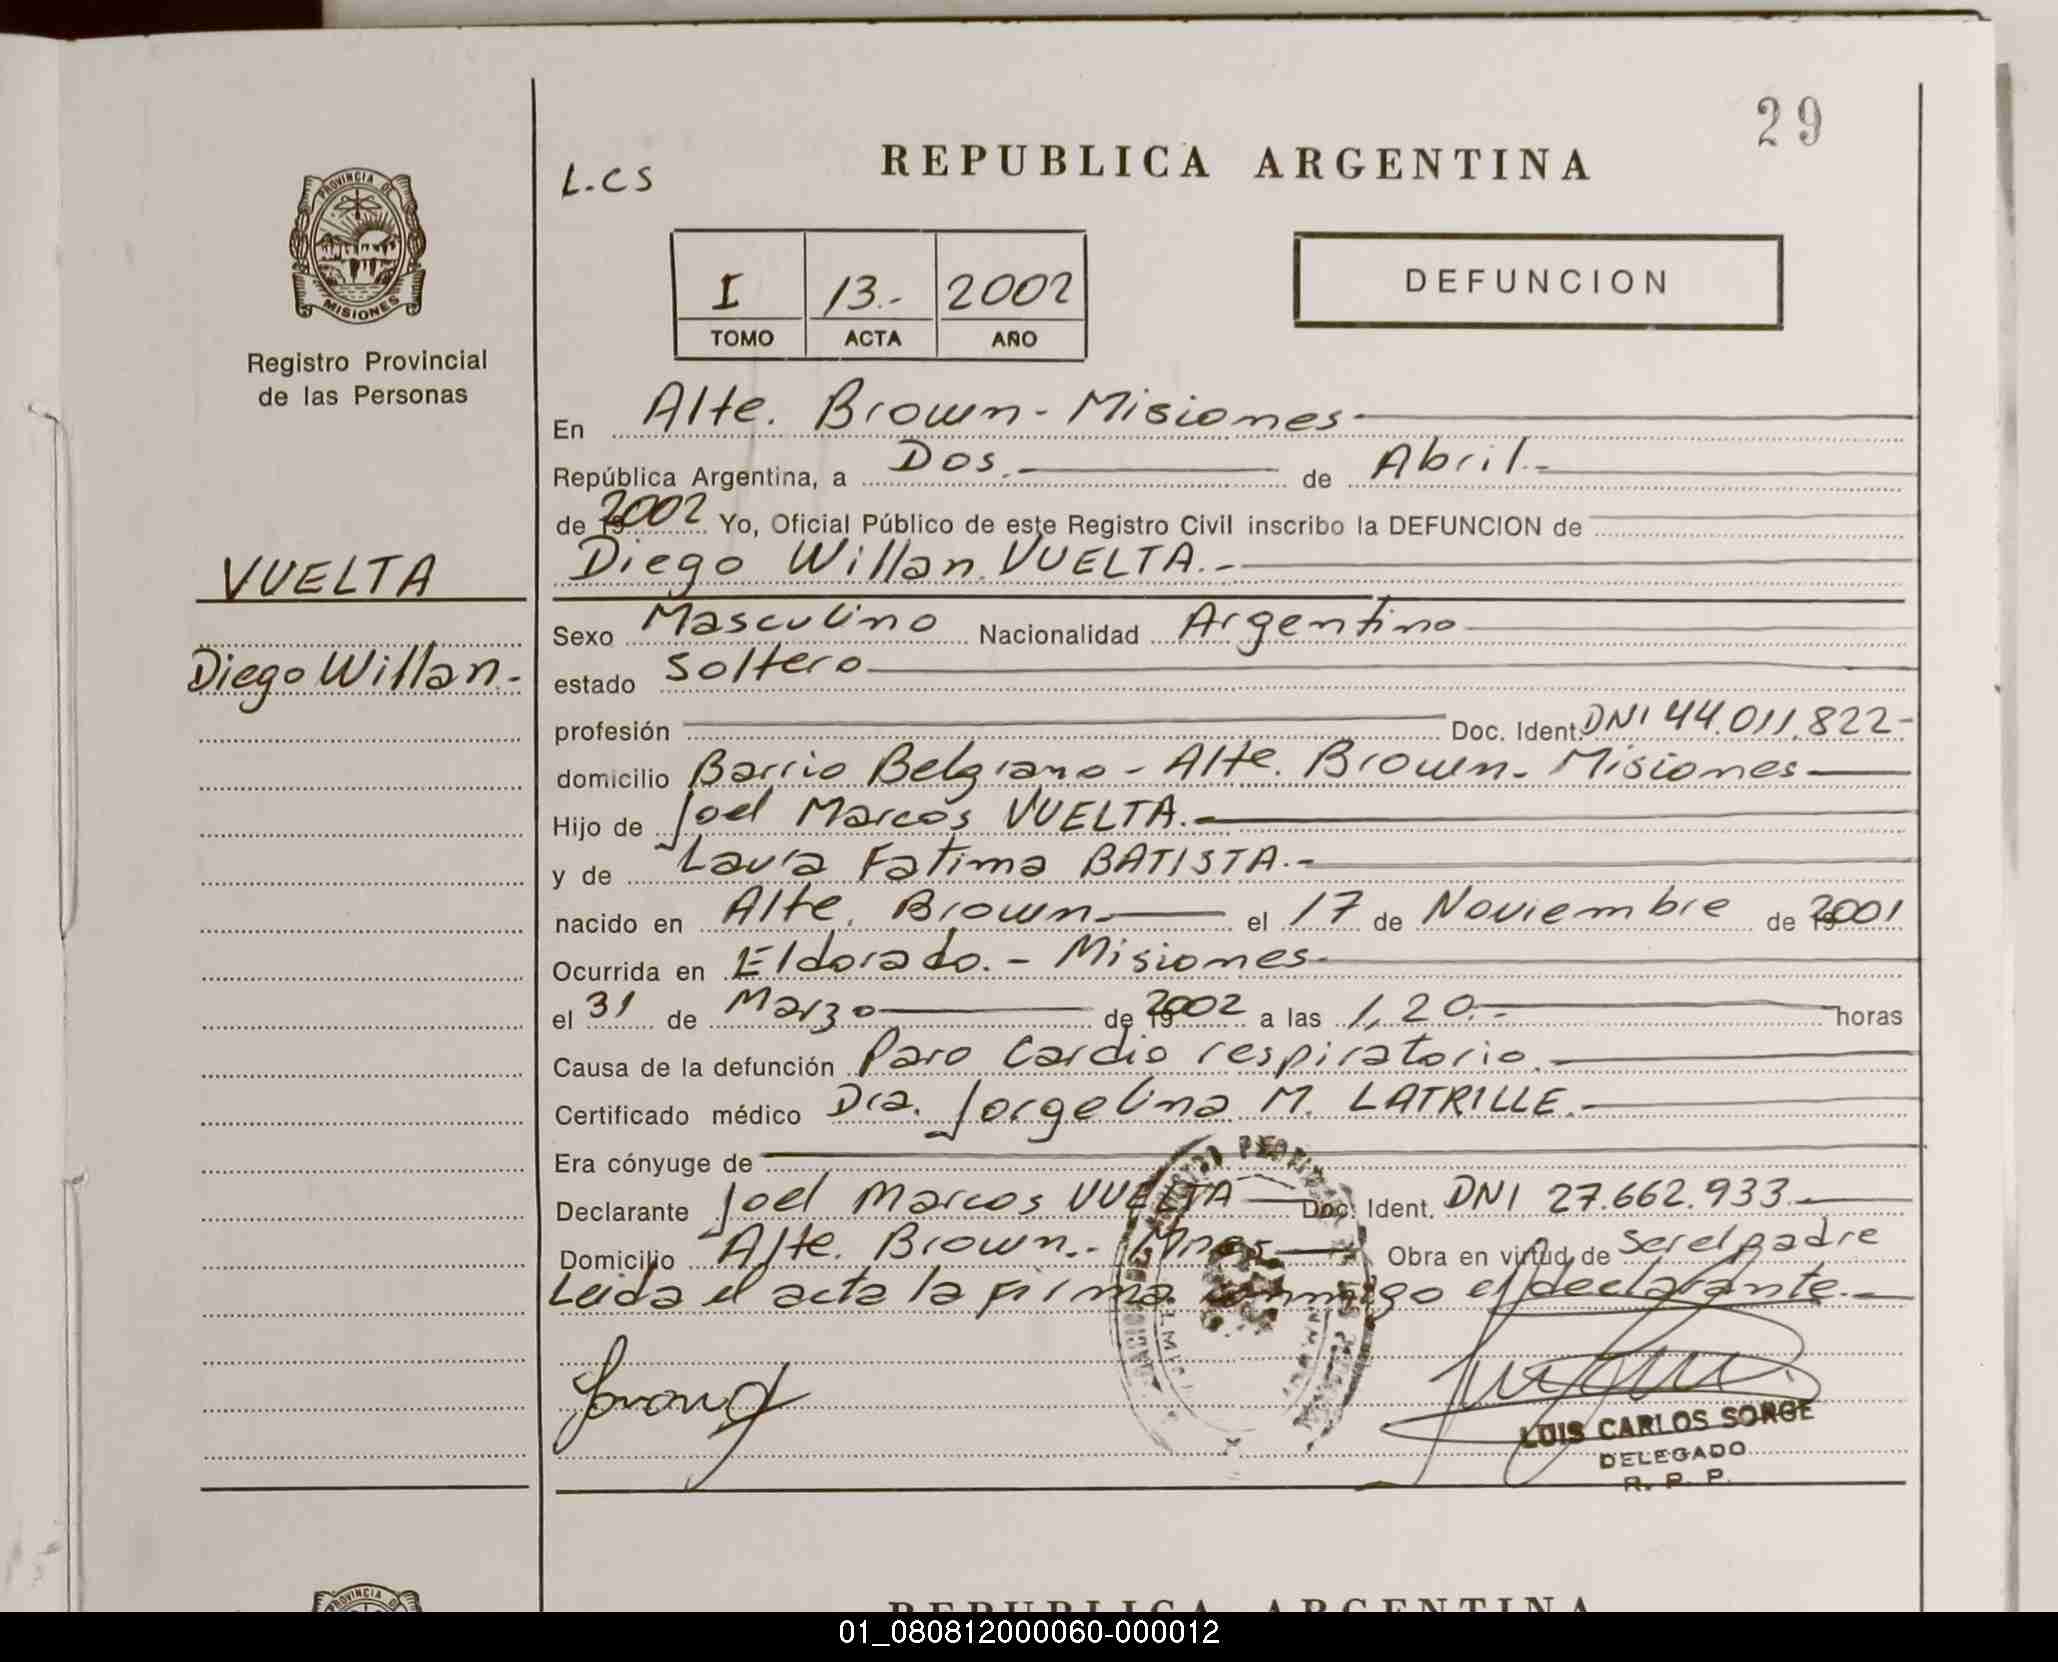 29
REPUBLICA ARGENTINA
L.CS
PROVINCIA DE
MISIONES
Registro Provincial
de las Personas
I 13.- 2002
TOMO ACTA AÑO
DEFUNCION
En Alte. Brown - Misiones
República Argentina, a Dos. de Abril.-
de 2002 Yo, Oficial Público de este Registro Civil inscribo la DEFUNCION de
VUELTA
Diego Willan VUELTA.-
Diego Willan.-
Sexo Masculino Nacionalidad Argentino
estado Soltero
profesión Doc. Ident. DNI 44.011.822-
domicilio Barrio Belgrano - Alte. Brown - Misiones
Hijo de Joel Marcos VUELTA.-
y de Laura Fatima BATISTA.-
nacido en Alte. Brown.- el 17 de Noviembre de 2001
Ocurrida en Eldorado.- Misiones-
el 31 de Marzo de 2002 a las 1,20.- horas
Causa de la defunción Paro Cardio respiratorio.-
Certificado médico Dra. Jorgelina M. LATRILLE.-
Era cónyuge de
Declarante Joel Marcos VUELTA Doc. Ident. DNI 27.662.933.-
Domicilio Alte. Brown.- Mnes- Obra en virtud de Ser el padre
Leida el acta la firma conmigo el declarante.-
LUIS CARLOS SORGE
DELEGADO
R. P. P.
PROVINCIA DE
REPUBLICA ARGENTINA
01_080812000060-000012